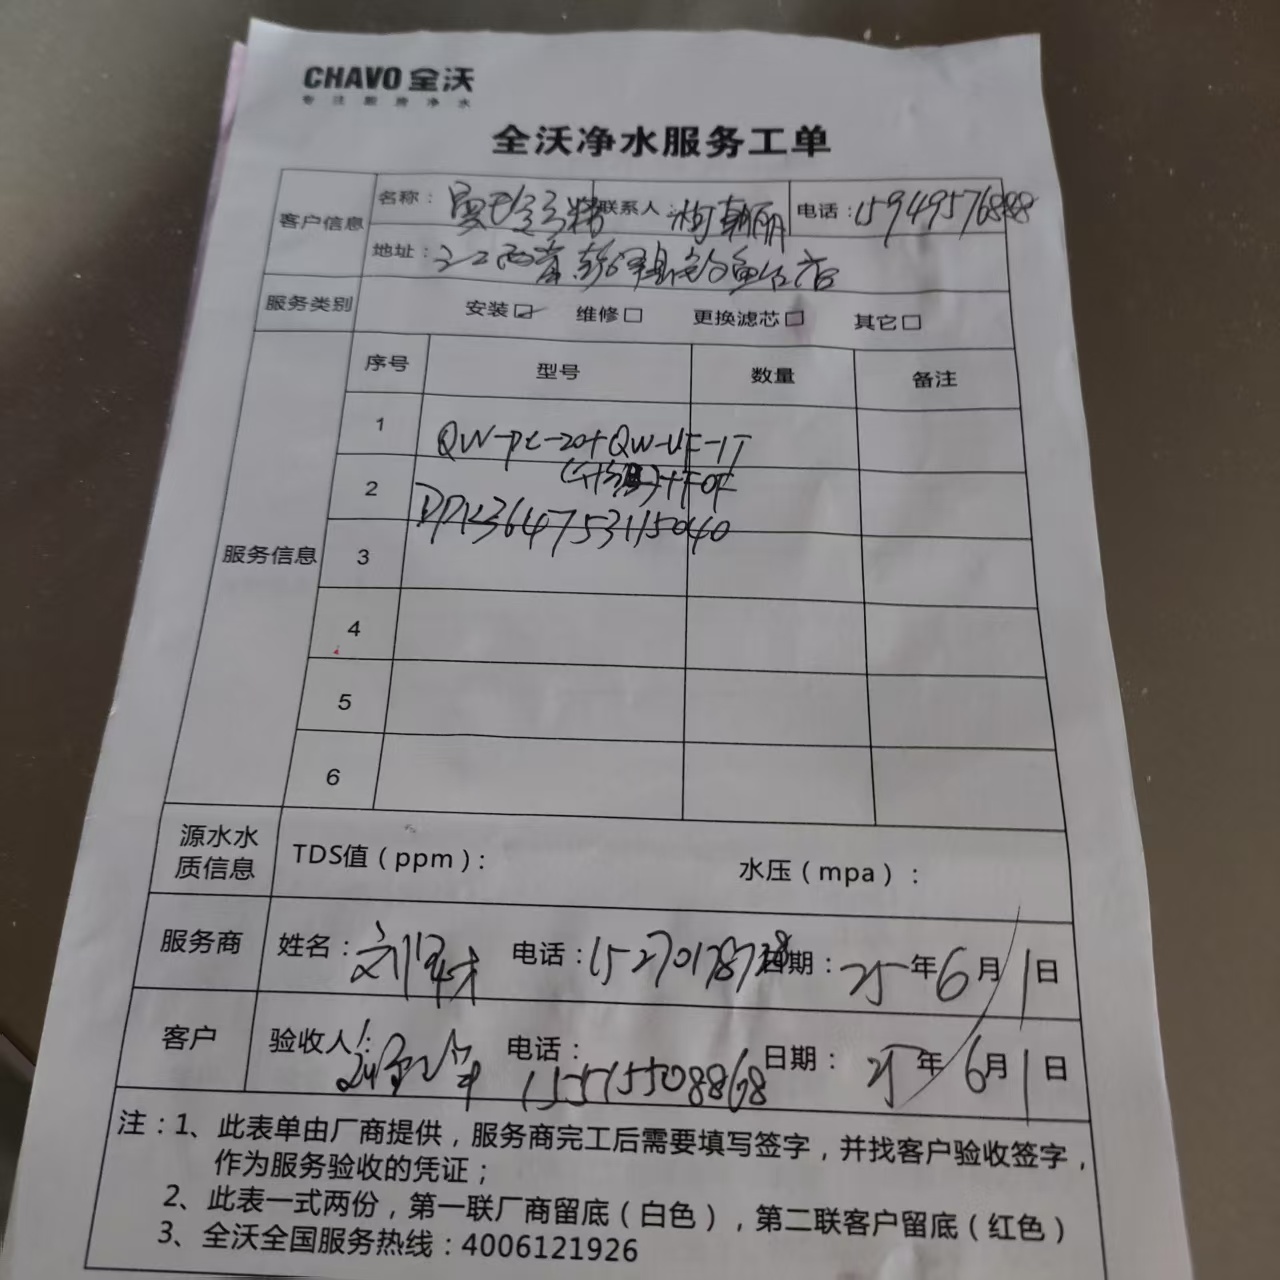 CHAVO 全沃
专注厨房净水
全沃净水服务工单
客户信息 名称： 联系人：柯朝丽 电话：15949576888
地址：江西省彭泽县钓鱼台店
服务类别 安装☑ 维修□ 更换滤芯□ 其它□
服务信息 序号 型号 数量 备注
1 QW-PC-20+QW-UF-1T
2 +FOF
DPK364753115040
3
4
5
6
源水水质信息 TDS值（ppm）： 水压（mpa）：
服务商 姓名：刘 电话：15270178728 日期：25年6月1日
客户 验收人： 电话：15515508868 日期：25年6月1日
注：1、此表单由厂商提供，服务商完工后需要填写签字，并找客户验收签字，
作为服务验收的凭证；
2、此表一式两份，第一联厂商留底（白色），第二联客户留底（红色）
3、全沃全国服务热线：4006121926